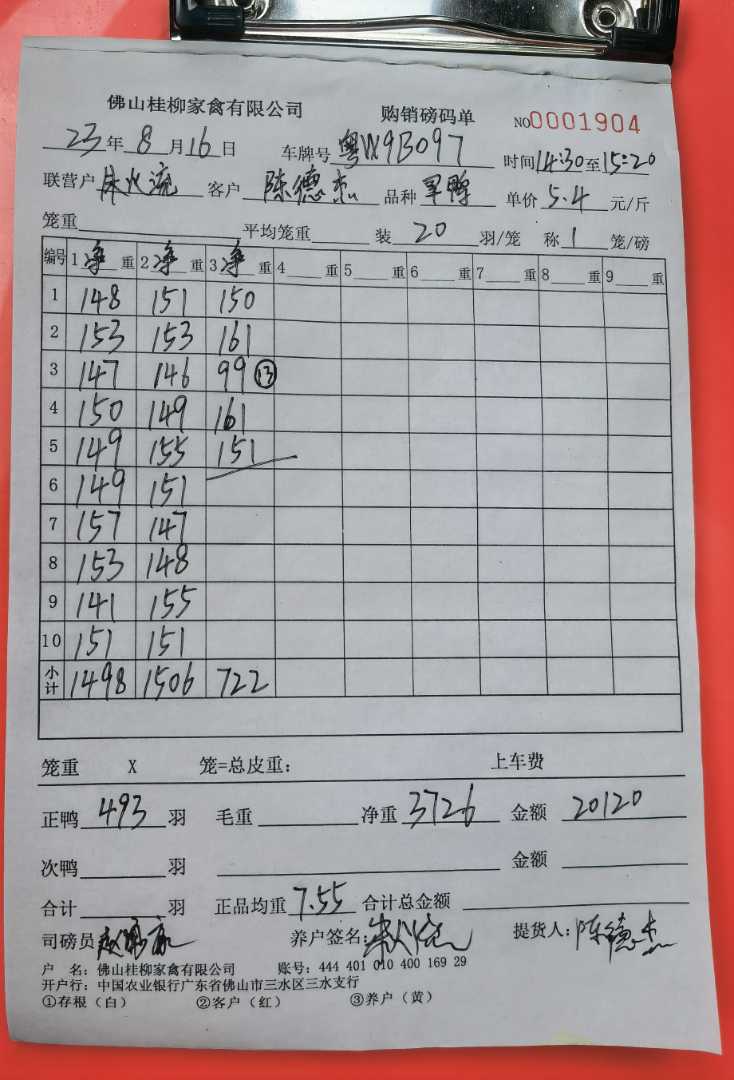 佛山桂柳家禽有限公司 购销磅码单 NO0001904
23年8月16日 车牌号 粤W9B097 时间14:30至15:20
联营户 朱火流 客户 陈德杰 品种 旱鸭 单价 5.4 元/斤
笼重 平均笼重 装 20 羽/笼 称 1 笼/磅
编号 1净重 2净重 3净重 4重 5重 6重 7重 8重 9重
1 148 151 150
2 153 153 161
3 147 146 99 ⑬
4 150 149 161
5 149 155 151
6 149 151
7 157 147
8 153 148
9 141 155
10 151 151
小计 1498 1506 722
笼重 X 笼=总皮重: 上车费
正鸭 493 羽 毛重 净重 3726 金额 20120
次鸭 羽 金额
合计 羽 正品均重 7.55 合计总金额
司磅员 养户签名: 提货人: 陈德杰
户 名: 佛山桂柳家禽有限公司 账号: 444 401 010 400 169 29
开户行: 中国农业银行广东省佛山市三水区三水支行
①存根（白） ②客户（红） ③养户（黄）